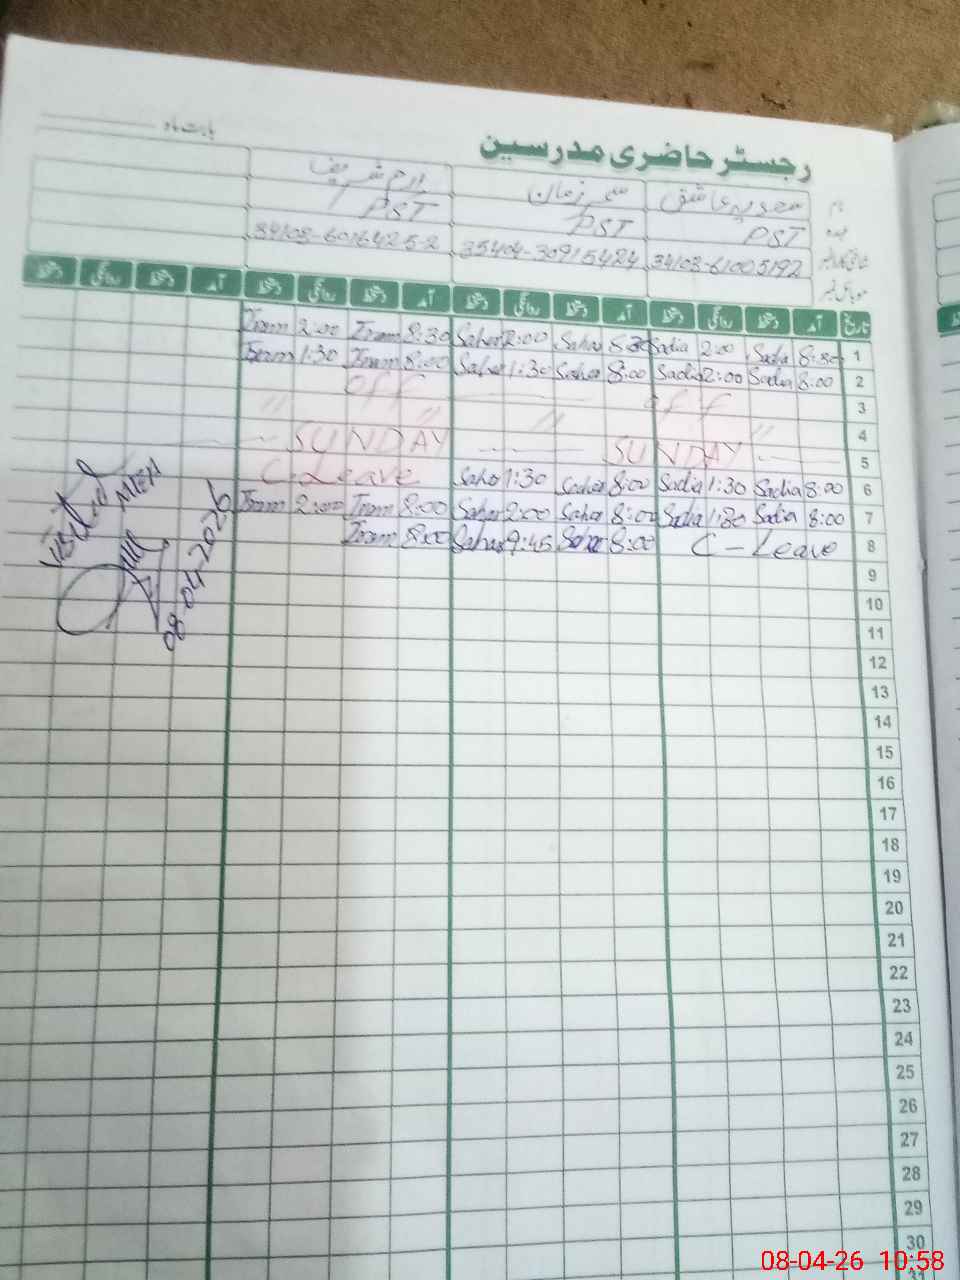 رجسٹر حاضری مدرسین
بابت ماہ
نام سعدیہ عاشق سحر زمان ارم شریف
عہدہ PST PST PST
34103-61005192 35404-30915424 34103-6016425-2
موبائل نمبر
تاریخ آمد دستخط روانگی دستخط آمد دستخط روانگی دستخط آمد دستخط روانگی دستخط آمد دستخط روانگی دستخط
Iram 2:00 Iram 8:30 Sahar 2:00 Sahar 8:30 Sadia 2:00 Sadia 8:30 1
Iram 1:30 Iram 8:00 Sahar 1:30 Sahar 8:00 Sadia 2:00 Sadia 8:00 2
OFF OFF 3
" " " " 4
SUNDAY SUNDAY 5
C-Leave Sahar 1:30 Sahar 8:00 Sadia 1:30 Sadia 8:00 6
Iram 2:00 Iram 8:00 Sahar 2:00 Sahar 8:00 Sadia 1:30 Sadia 8:00 7
Iram 8:00 Sahar 9:45 Sahar 8:00 C-Leave 8
Visited
08-04-2026
9
10
11
12
13
14
15
16
17
18
19
20
21
22
23
24
25
26
27
28
29
30
31
08-04-26 10:58